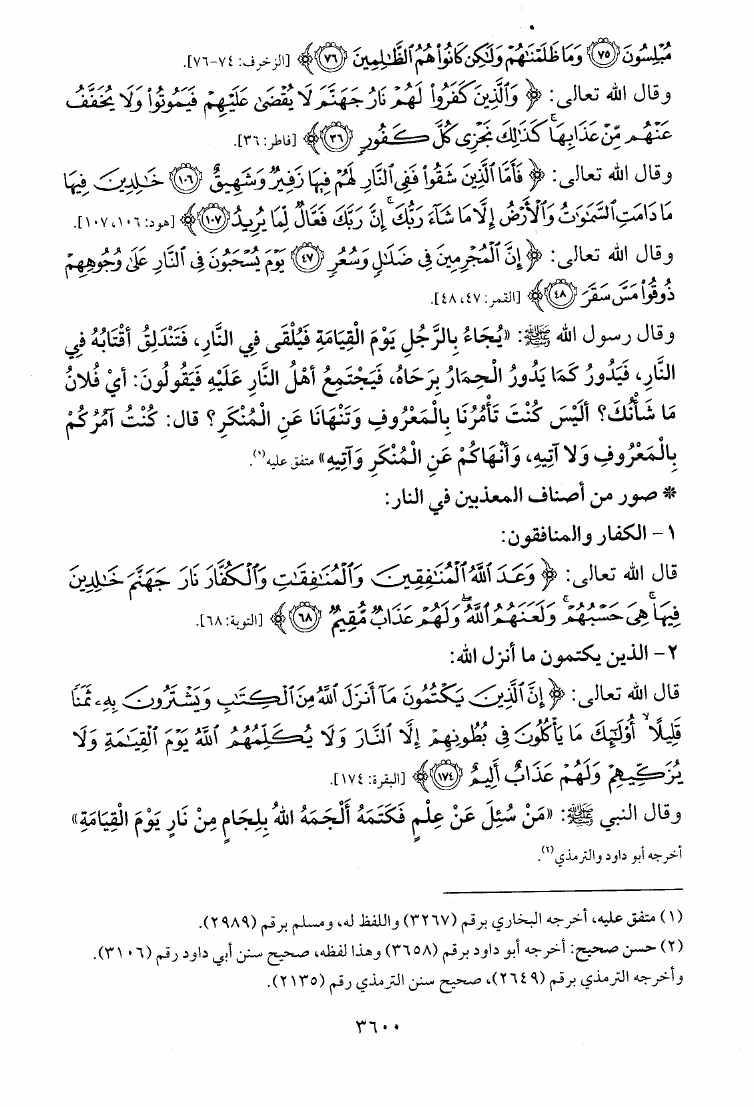 مُبْلِسُونَ ﴿٧٥﴾ وَمَا ظَلَمْنَاهُمْ وَلَكِن كَانُوا هُمُ الظَّالِمِينَ ﴿٧٦﴾﴾ [الزخرف: ٧٤-٧٦].
وقال الله تعالى: ﴿وَالَّذِينَ كَفَرُوا لَهُمْ نَارُ جَهَنَّمَ لَا يُقْضَى عَلَيْهِمْ فَيَمُوتُوا وَلَا يُخَفَّفُ
عَنْهُم مِّنْ عَذَابِهَا كَذَلِكَ نَجْزِي كُلَّ كَفُورٍ ﴿٣٦﴾﴾ [فاطر: ٣٦].
وقال الله تعالى: ﴿فَأَمَّا الَّذِينَ شَقُوا فَفِي النَّارِ لَهُمْ فِيهَا زَفِيرٌ وَشَهِيقٌ ﴿١٠٦﴾ خَالِدِينَ فِيهَا
مَا دَامَتِ السَّمَاوَاتُ وَالْأَرْضُ إِلَّا مَا شَاءَ رَبُّكَ إِنَّ رَبَّكَ فَعَّالٌ لِّمَا يُرِيدُ ﴿١٠٧﴾﴾ [هود: ١٠٦، ١٠٧].
وقال الله تعالى: ﴿إِنَّ الْمُجْرِمِينَ فِي ضَلَالٍ وَسُعُرٍ ﴿٤٧﴾ يَوْمَ يُسْحَبُونَ فِي النَّارِ عَلَى وُجُوهِهِمْ
ذُوقُوا مَسَّ سَقَرَ ﴿٤٨﴾﴾ [القمر: ٤٧، ٤٨].
وقال رسول الله ﷺ: «يُجَاءُ بِالرَّجُلِ يَوْمَ الْقِيَامَةِ فَيُلْقَى فِي النَّارِ، فَتَنْدَلِقُ أَقْتَابُهُ فِي
النَّارِ، فَيَدُورُ كَمَا يَدُورُ الْحِمَارُ بِرَحَاهُ، فَيَجْتَمِعُ أَهْلُ النَّارِ عَلَيْهِ فَيَقُولُونَ: أَيْ فُلَانُ
مَا شَأْنُكَ؟ أَلَيْسَ كُنْتَ تَأْمُرُنَا بِالْمَعْرُوفِ وَتَنْهَانَا عَنِ الْمُنْكَرِ؟ قال: كُنْتُ آمُرُكُمْ
بِالْمَعْرُوفِ وَلَا آتِيهِ، وَأَنْهَاكُمْ عَنِ الْمُنْكَرِ وَآتِيهِ» متفق عليه(١).
* صور من أصناف المعذبين في النار:
١- الكفار والمنافقون:
قال الله تعالى: ﴿وَعَدَ اللَّهُ الْمُنَافِقِينَ وَالْمُنَافِقَاتِ وَالْكُفَّارَ نَارَ جَهَنَّمَ خَالِدِينَ
فِيهَا هِيَ حَسْبُهُمْ وَلَعَنَهُمُ اللَّهُ وَلَهُمْ عَذَابٌ مُّقِيمٌ ﴿٦٨﴾﴾ [التوبة: ٦٨].
٢- الذين يكتمون ما أنزل الله:
قال الله تعالى: ﴿إِنَّ الَّذِينَ يَكْتُمُونَ مَا أَنزَلَ اللَّهُ مِنَ الْكِتَابِ وَيَشْتَرُونَ بِهِ ثَمَنًا
قَلِيلًا أُولَئِكَ مَا يَأْكُلُونَ فِي بُطُونِهِمْ إِلَّا النَّارَ وَلَا يُكَلِّمُهُمُ اللَّهُ يَوْمَ الْقِيَامَةِ وَلَا
يُزَكِّيهِمْ وَلَهُمْ عَذَابٌ أَلِيمٌ ﴿١٧٤﴾﴾ [البقرة: ١٧٤].
وقال النبي ﷺ: «مَنْ سُئِلَ عَنْ عِلْمٍ فَكَتَمَهُ أَلْجَمَهُ اللهُ بِلِجَامٍ مِنْ نَارٍ يَوْمَ الْقِيَامَةِ»
أخرجه أبو داود والترمذي(٢).
(١) متفق عليه، أخرجه البخاري برقم (٣٢٦٧) واللفظ له، ومسلم برقم (٢٩٨٩).
(٢) حسن صحيح: أخرجه أبو داود برقم (٣٦٥٨) وهذا لفظه، صحيح سنن أبي داود رقم (٣١٠٦).
وأخرجه الترمذي برقم (٢٦٤٩)، صحيح سنن الترمذي رقم (٢١٣٥).
٣٦٠٠